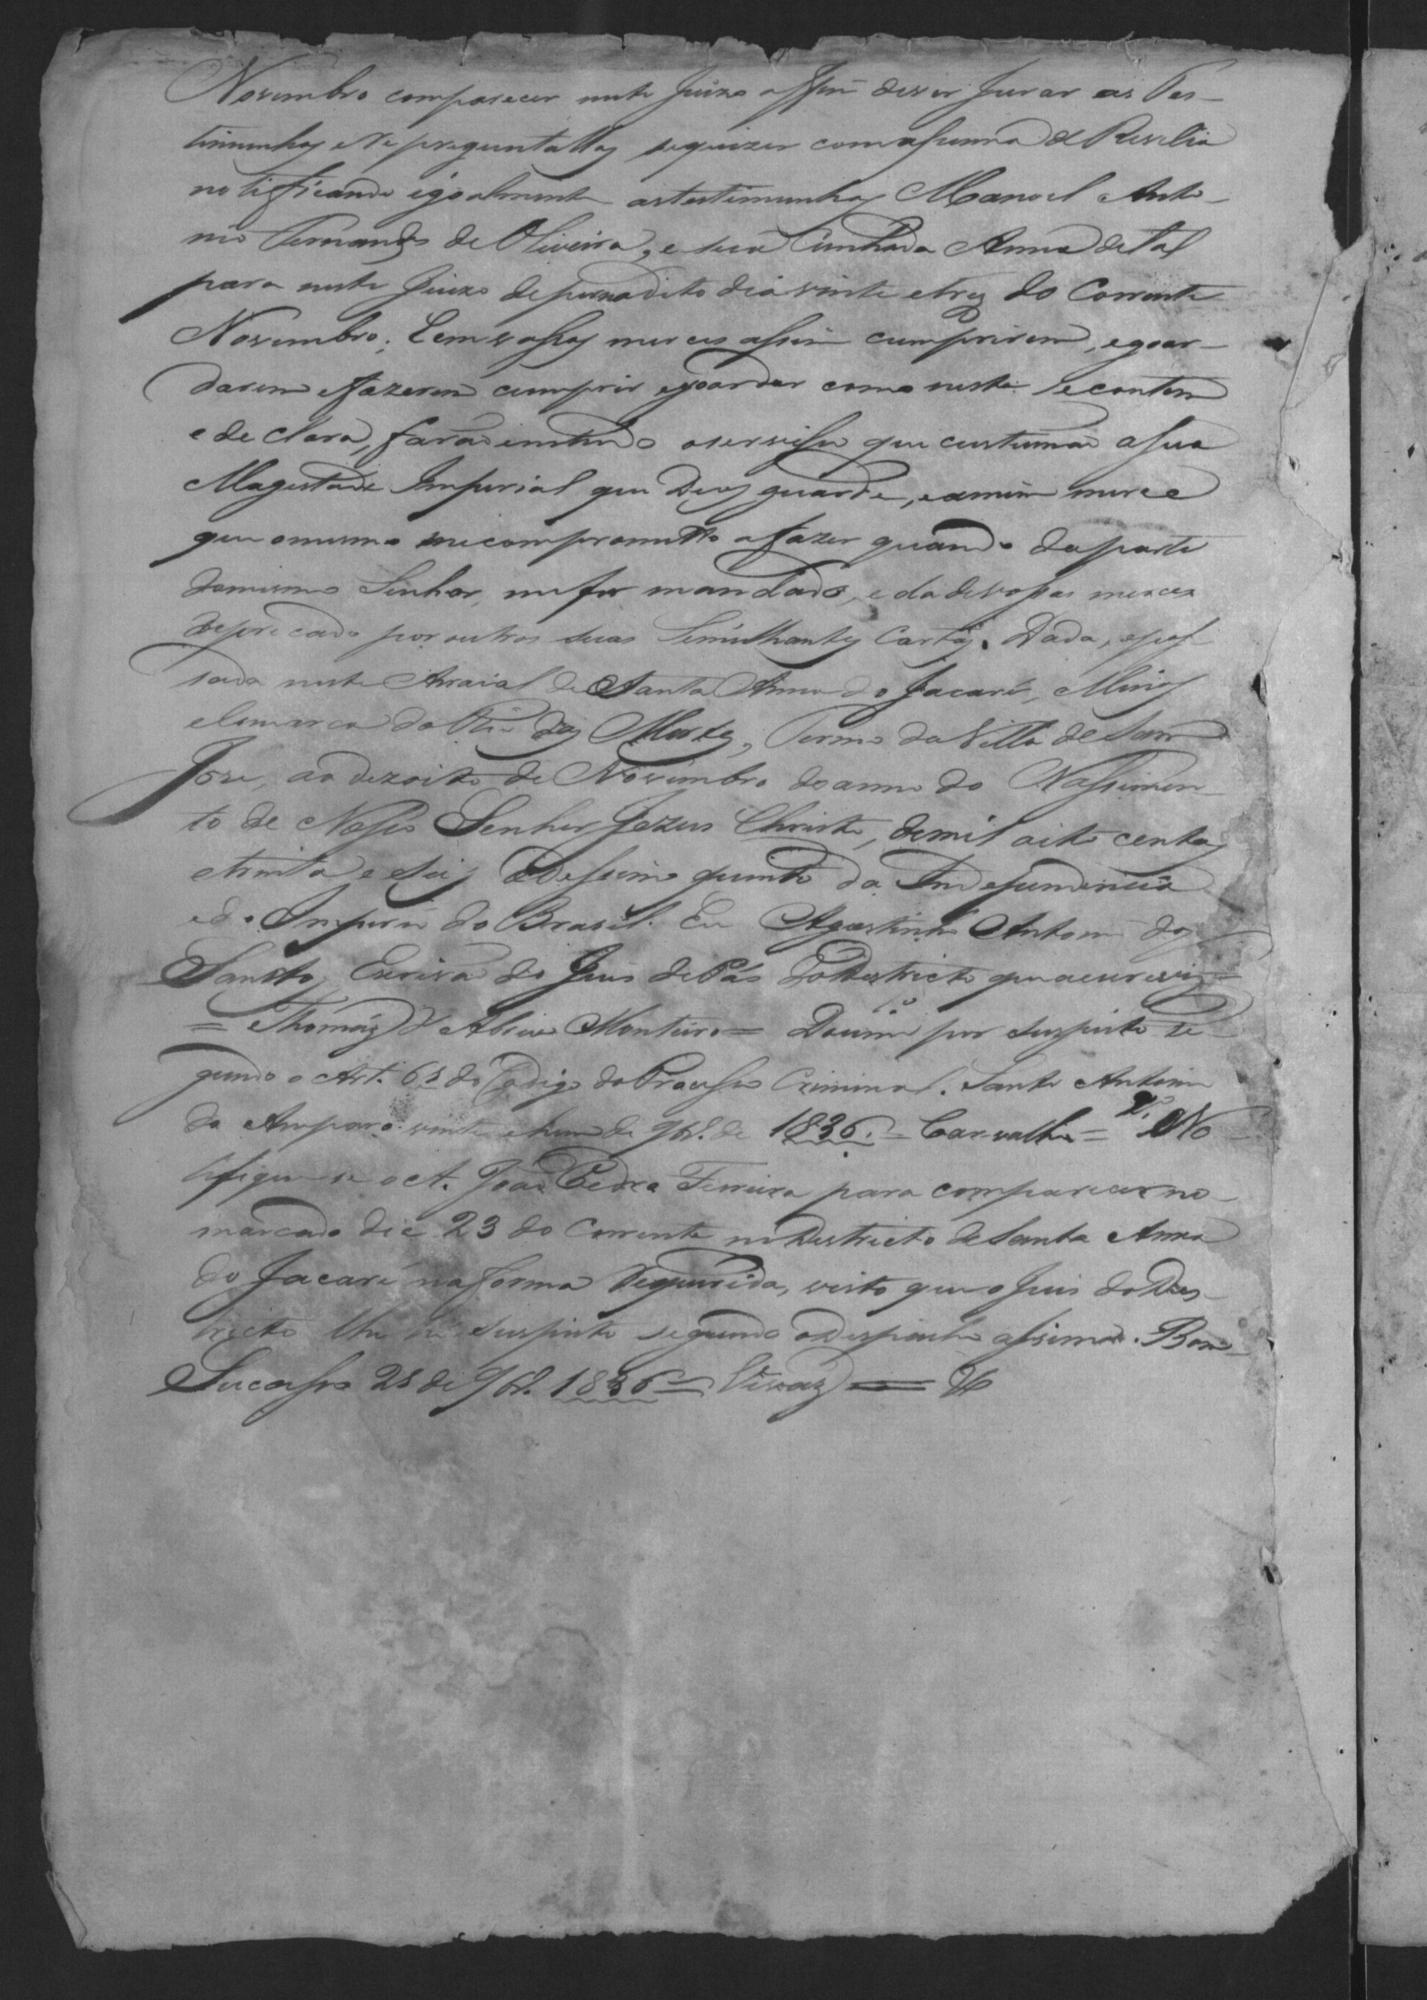 Novembro comparecer neste Juizo affim de ver Jurar as Tes-
timunhas e Repreguntallas sequizer com a penna de Revelia
notificando igoalmente as testimunhas Manoel Anto-
nio Fernandes de Oliveira, e sua Cunhada Anna de tal
para neste Juizo deporem no dito dia vinte e tres do Corrente
Novembro; E em vossas merces assim cumprirem, e goar-
darem e fazerem cumprir e goardar como nesta se contem
e de clara, farão em tudo o servisso que custumão a Sua
Magestade Imperial que Deos guarde, e a mim merce
que o mesmo me comprometto a fazer quando da parte
do mesmo Senhor, me for mandado, e da de vossas merces
deprecado por outras suas Semilhantes Cartas. Dada, e pas-
sada neste Arraial de Santa Anna do Jacaré, Minas
e Comarca do Rio das Mortes, Termo da Villa de Sam
Jose, ao dezoito de Novembro do anno do Nassimen-
to de Nosso Senhor Jezus Christo, de mil oito centos
e trinta e Seis Dessimo quinto da Independencia
e do Imperio do Brasil. Eu Agostinho Antonio dos
Santtos Escrivão do Juis de Pás do Destricto que a escrevi =
= Thomás d'Abreu Monteiro = Doume por suspeito se-
gundo o Art. 61 do Codigo do Processo Criminal. Santo Antonio
do Amparo vinte e hum de 9br.o de 1836. = Carvalho = No-
tifique se o A. João Pedro Ferreira para comparecer no
marcado dia 23 do Corrente no Destricto de Santa Anna
do Jacaré na forma Requerida, visto que o Juis do Des-
tricto lhe hé suspeito segundo o Despacho assima. Bom
Sucesso 21 de 9br.o 1836 =